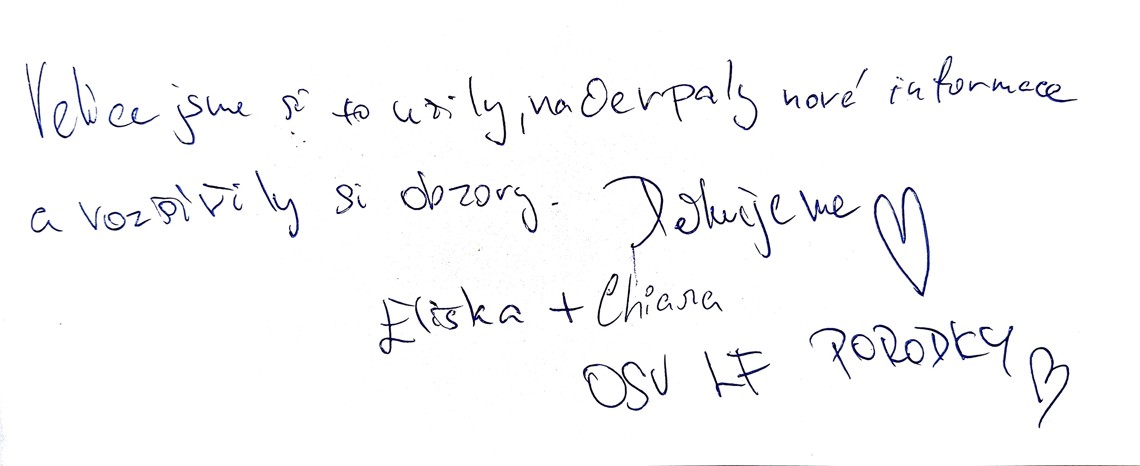 Velice jsme si to užily, načerpaly nové informace
a rozšířily si obzory. Děkujeme ♡
Eliška + Chiara
OSU LF PORODKY ♡